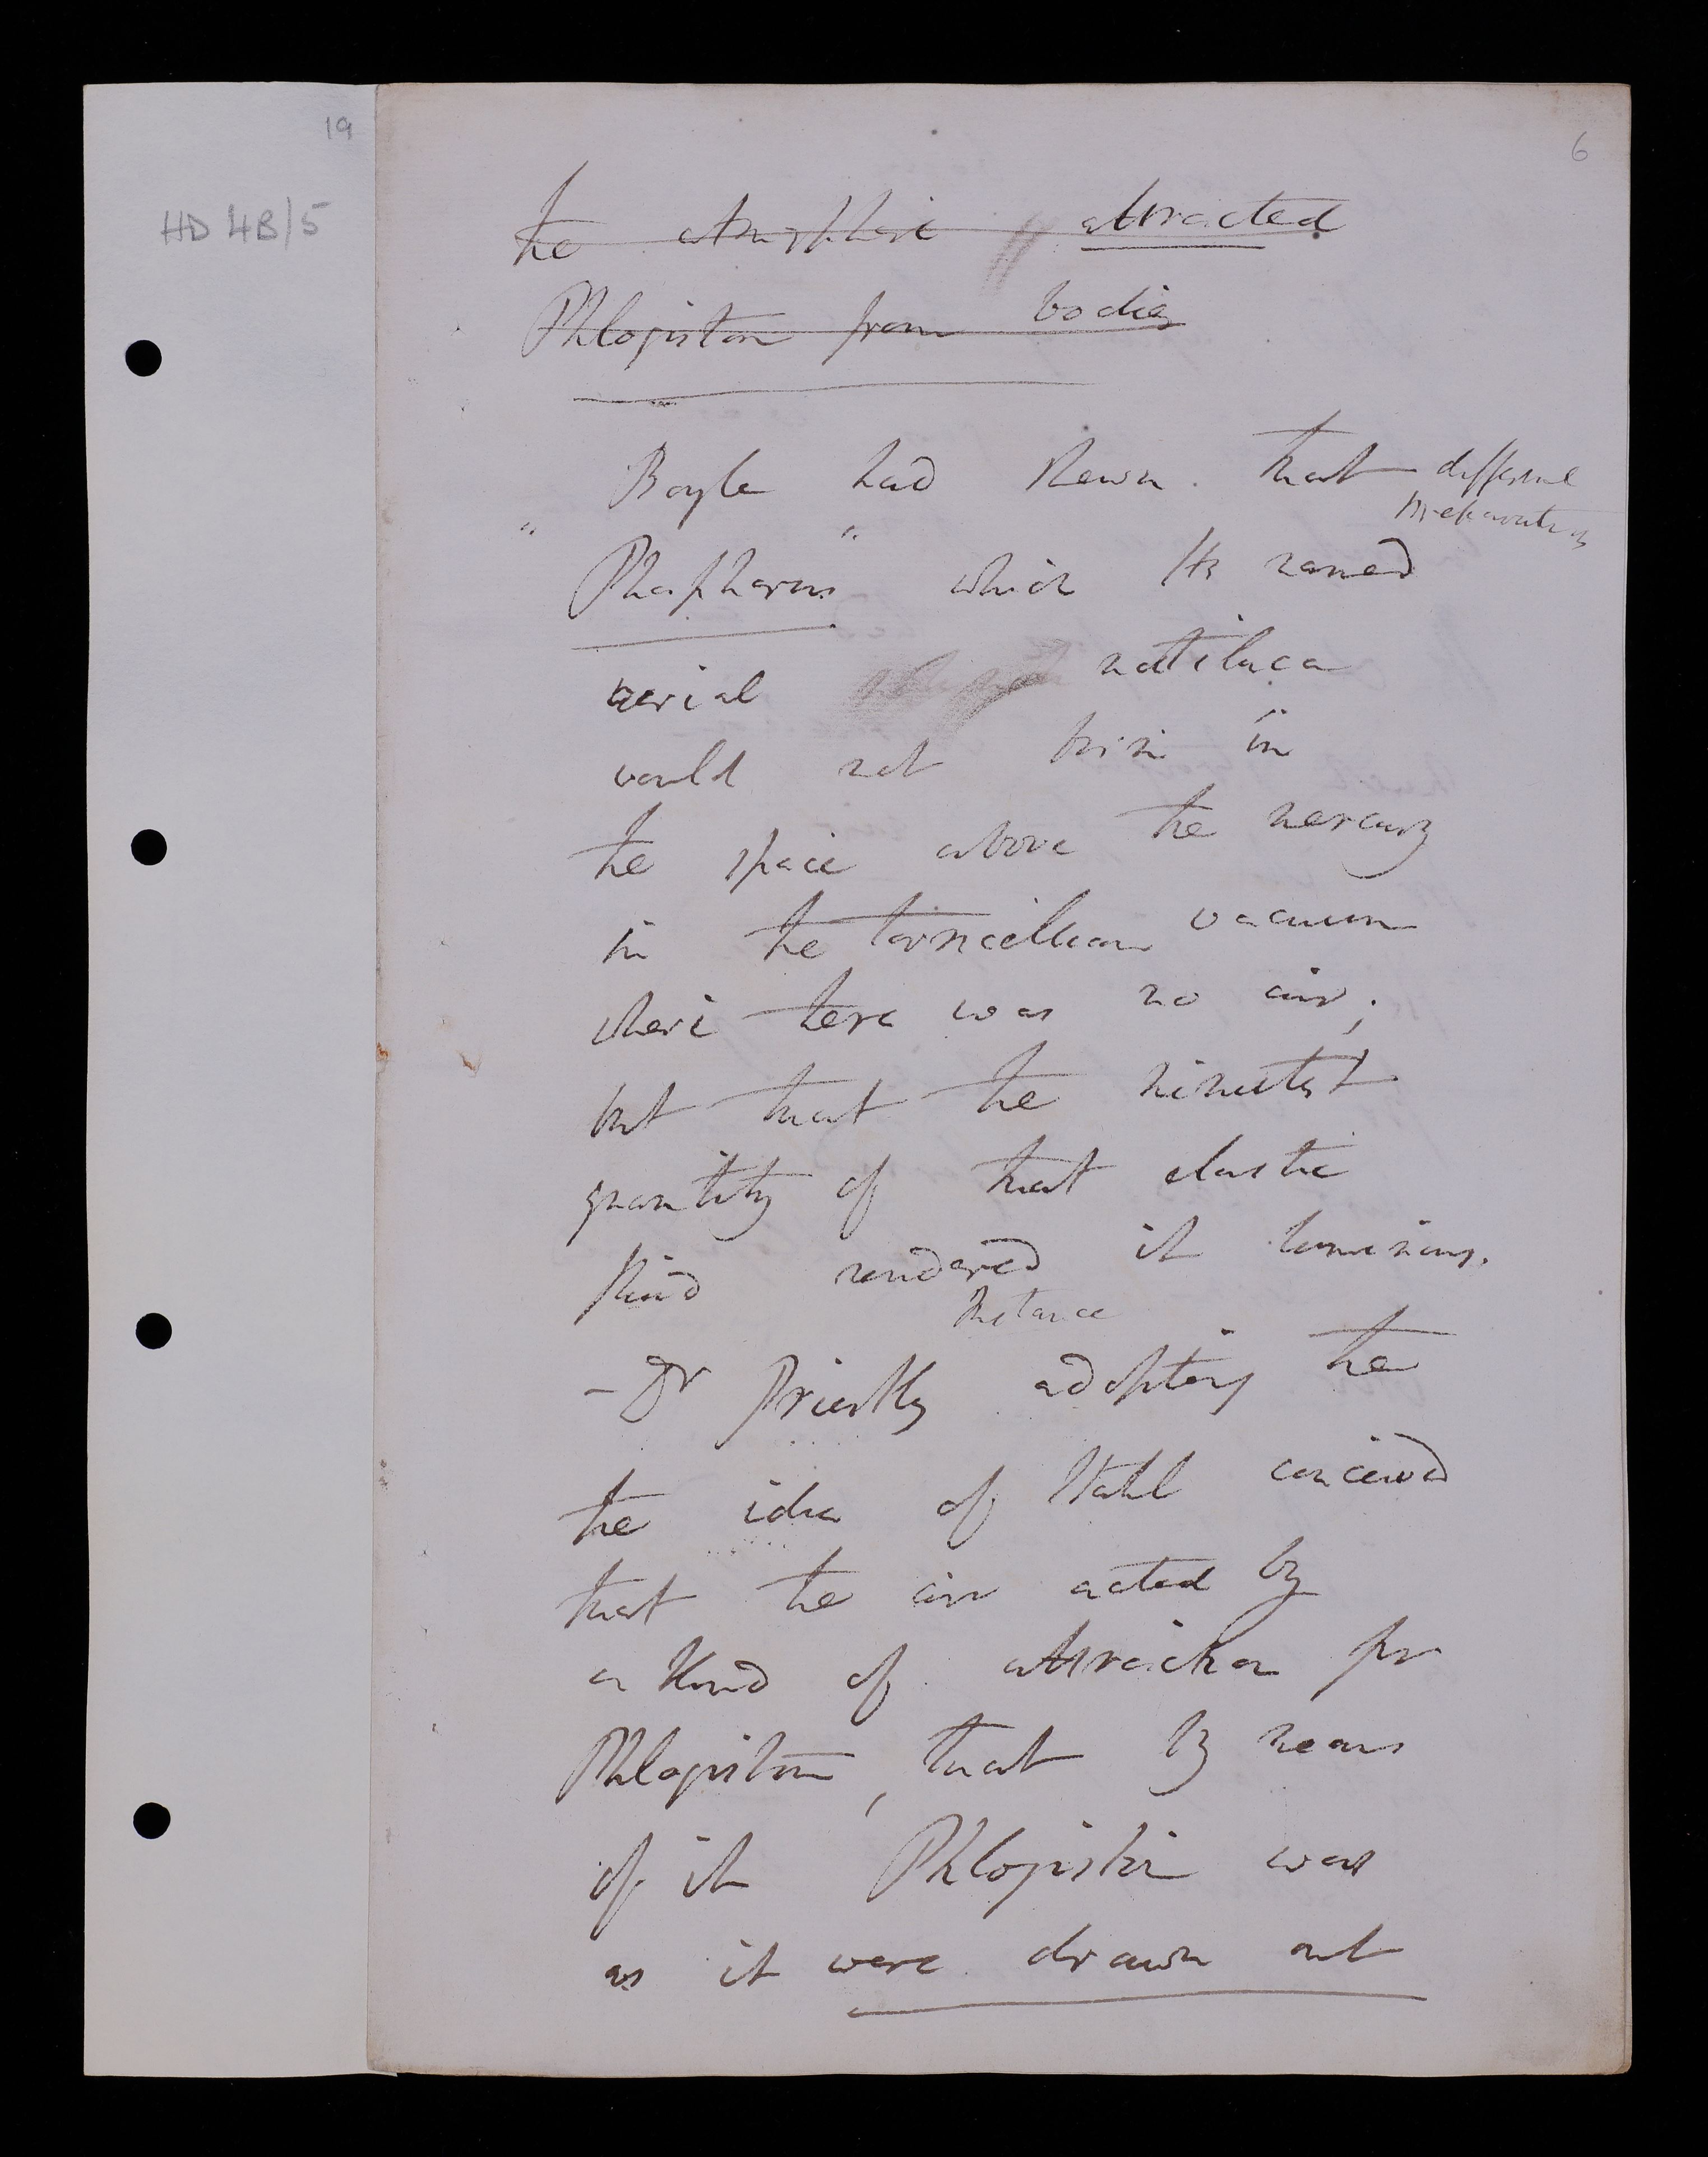 19
6
HD 4B/5
the atmosphere attracted
Phlogiston from bodies
Boyle had shewn that different
preparations
"Phosphorus" which He named
aerial noctiluca
would not shine in
the space above the mercury
in the torricellian vacuum
where there was no air;
but that the minutest
quantity of that elastic
fluid rendered it luminous.
instance
- Dr Priestley adopting the
the idea of Stahl conceived
that the air acted by
a kind of attraction for
Phlogiston, that by means
of it Phlogiston was
as it were drawn out